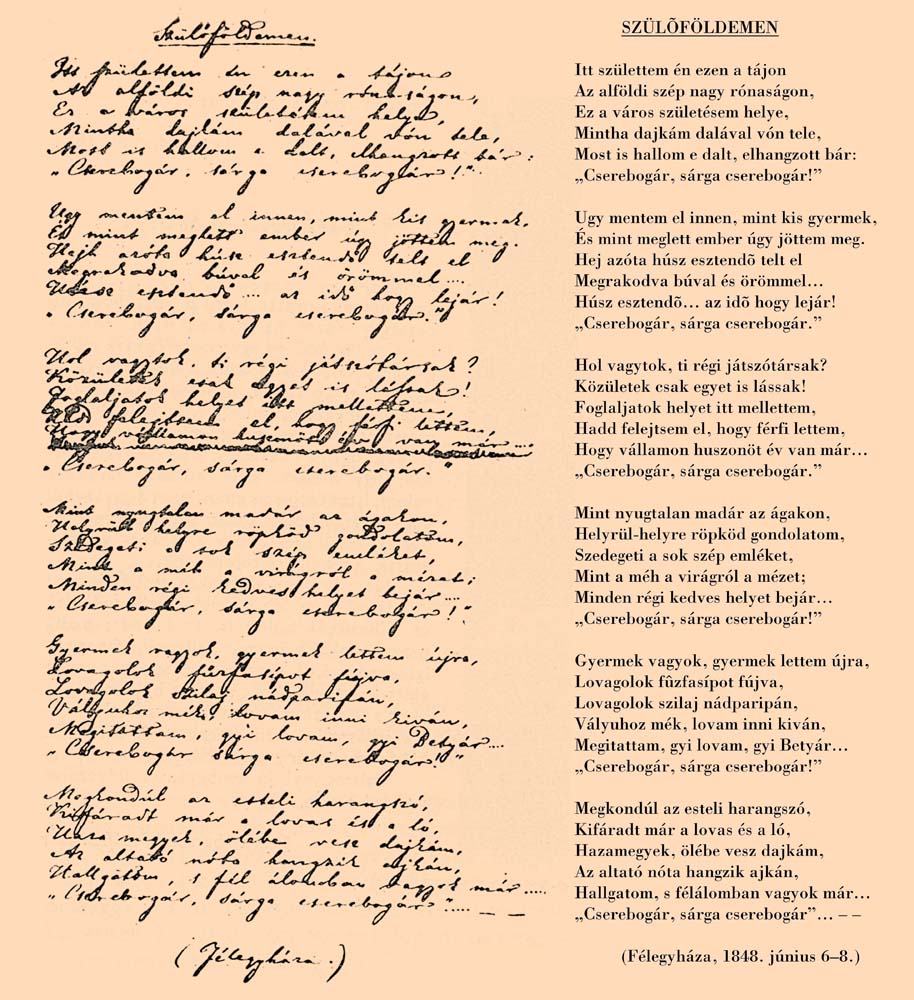 Szülőföldemen.
Itt születtem én ezen a tájon
Az alföldi szép nagy rónaságon,
Ez a város születésem helye,
Mintha dajkám dalával vón tele,
Most is hallom e dalt, elhangzott bár:
„Cserebogár, sárga cserebogár!”
Ugy mentem el innen, mint kis gyermek,
És mint meglett ember úgy jöttem meg.
Hejh azóta húsz esztendő telt el
Megrakodva búval és örömmel....
Húsz esztendő.... az idő hogy lejár!
„Cserebogár, sárga cserebogár.”
Hol vagytok, ti régi játszótársak?
Közületek csak egyet is lássak!
Foglaljatok helyet itt mellettem,
Hadd felejtsem el, hogy férfi lettem,
Hogy vállamon huszonöt év van már....
„Cserebogár, sárga cserebogár.”
Mint nyugtalan madár az ágakon,
Helyrül helyre röpköd gondolatom,
Szedegeti a sok szép emléket,
Mint a méh a virágról a mézet;
Minden régi kedves helyet bejár....
„Cserebogár, sárga cserebogár!”
Gyermek vagyok, gyermek lettem újra,
Lovagolok fűzfasípot fújva,
Lovagolok szilaj nádparipán,
Vályuhoz mék, lovam inni kiván,
Megitattam, gyi lovam, gyi Betyár....
„Cserebogár sárga cserebogár!”
Megkondúl az esteli harangszó,
Kifáradt már a lovas és a ló,
Haza megyek, ölébe vesz dajkám,
Az altató nóta hangzik ajkán,
Hallgatom, s fél álomban vagyok már.....
„Cserebogár, sárga cserebogár”.... – –
(Félegyháza.)
SZÜLÕFÖLDEMEN
Itt születtem én ezen a tájon
Az alföldi szép nagy rónaságon,
Ez a város születésem helye,
Mintha dajkám dalával vón tele,
Most is hallom e dalt, elhangzott bár:
„Cserebogár, sárga cserebogár!”
Ugy mentem el innen, mint kis gyermek,
És mint meglett ember úgy jöttem meg.
Hej azóta húsz esztendõ telt el
Megrakodva búval és örömmel...
Húsz esztendõ... az idõ hogy lejár!
„Cserebogár, sárga cserebogár.”
Hol vagytok, ti régi játszótársak?
Közületek csak egyet is lássak!
Foglaljatok helyet itt mellettem,
Hadd felejtsem el, hogy férfi lettem,
Hogy vállamon huszonöt év van már...
„Cserebogár, sárga cserebogár.”
Mint nyugtalan madár az ágakon,
Helyrül-helyre röpköd gondolatom,
Szedegeti a sok szép emléket,
Mint a méh a virágról a mézet;
Minden régi kedves helyet bejár...
„Cserebogár, sárga cserebogár!”
Gyermek vagyok, gyermek lettem újra,
Lovagolok fûzfasípot fújva,
Lovagolok szilaj nádparipán,
Vályuhoz mék, lovam inni kiván,
Megitattam, gyi lovam, gyi Betyár...
„Cserebogár, sárga cserebogár!”
Megkondúl az esteli harangszó,
Kifáradt már a lovas és a ló,
Hazamegyek, ölébe vesz dajkám,
Az altató nóta hangzik ajkán,
Hallgatom, s félálomban vagyok már...
„Cserebogár, sárga cserebogár”... – –
(Félegyháza, 1848. június 6–8.)